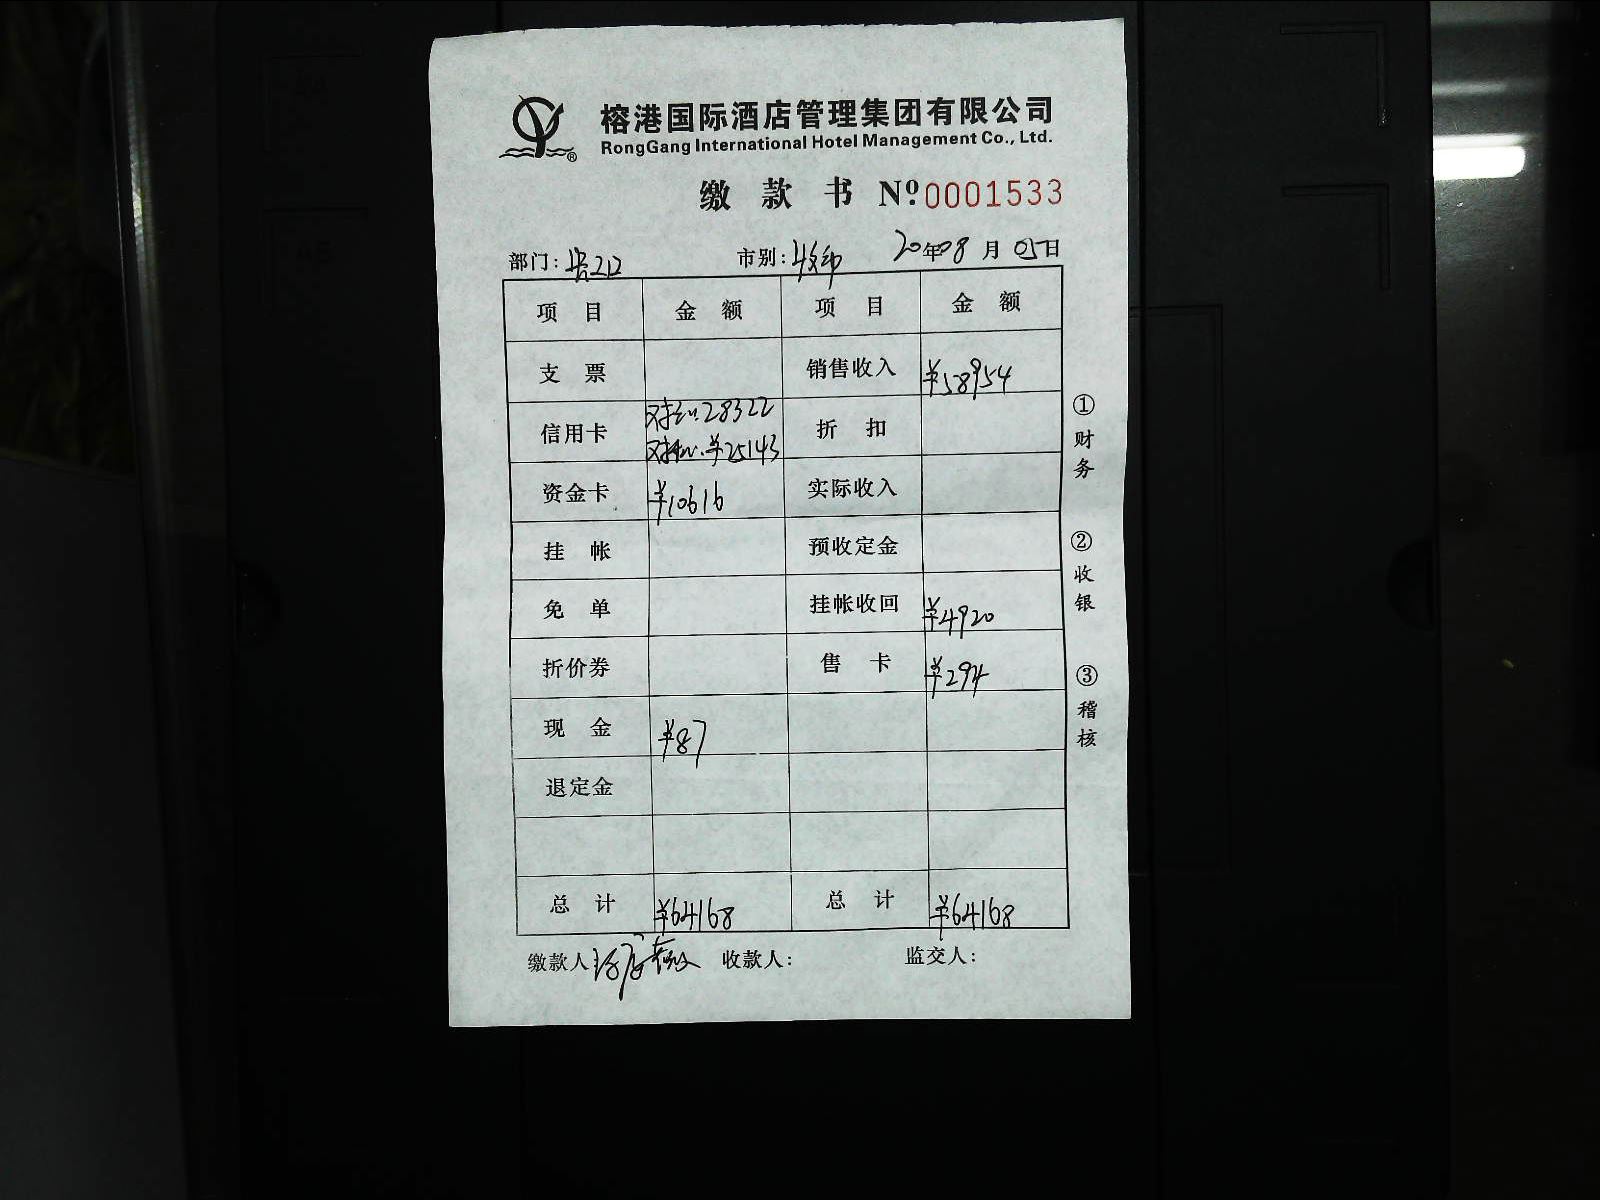 榕港国际酒店管理集团有限公司
RongGang International Hotel Management Co., Ltd.
缴 款 书 Nº:0001533
部门: 市别: 20年08月05日
项 目 金 额 项 目 金 额
支 票 销售收入 ¥58954
信用卡 28322 折 扣
¥25143
资金卡 ¥10616 实际收入
挂 帐 预收定金
免 单 挂帐收回 ¥4920
折价券 售 卡 ¥294
现 金 ¥87
退定金
总 计 ¥64168 总 计 ¥64168
缴款人 收款人: 监交人:
①财务
②收银
③稽核